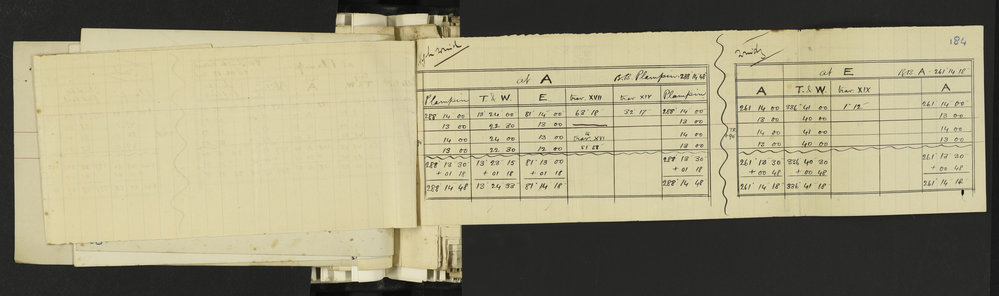 184
at A Plampin 288 14 48
Plampin T. & W. E trav. XVII trav. XIV Plampin
288 14 00 13° 24 00 81° 14 00 63° 18 32 17 288 14 00
13 00 22 30 13 00 13 00
14 00 24 00 13 00 trav. XVI 14 00
13 00 22 30 12 00 51 28 13 00
288 13 30 13° 23 15 81° 13 00 288 13 30
+ 01 18 + 01 18 + 01 18 + 01 18
288 14 48 13° 24 33 81° 14 18 288 14 48
at E A - 261 14 18
A T. & W. trav. XIX A
261 14 00 336° 41 00 1° 12 261 14 00
13 00 40 00 13 00
14 00 41 00 14 00
13 00 40 00 13 00
261 13 30 336 40 30 261 13 30
+ 00 48 + 00 48 + 00 48
261 14 18 336° 41 18 261 14 18